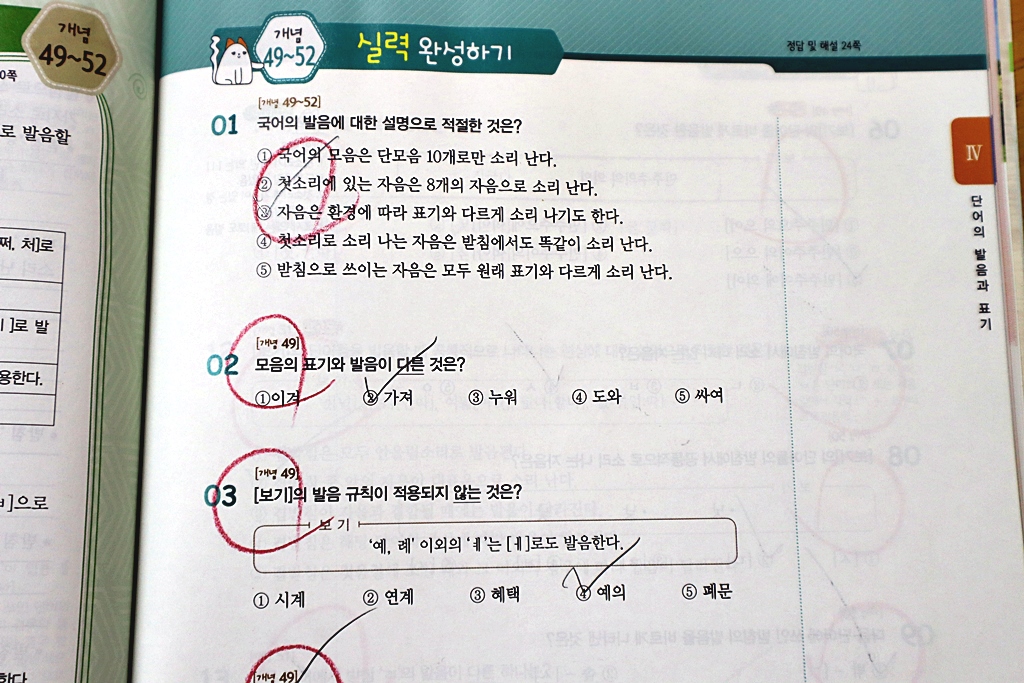 개념
49~52
0쪽
로 발음할
쩌, 처]로
]로 발
용한다.
]으로
한다.
개념
49~52
실력 완성하기
정답 및 해설 24쪽
[개념 49~52]
01 국어의 발음에 대한 설명으로 적절한 것은?
① 국어의 모음은 단모음 10개로만 소리 난다.
② 첫소리에 있는 자음은 8개의 자음으로 소리 난다.
③ 자음은 환경에 따라 표기와 다르게 소리 나기도 한다.
④ 첫소리로 소리 나는 자음은 받침에서도 똑같이 소리 난다.
⑤ 받침으로 쓰이는 자음은 모두 원래 표기와 다르게 소리 난다.
[개념 49]
02 모음의 표기와 발음이 다른 것은?
① 이겨 ② 가져 ③ 누워 ④ 도와 ⑤ 싸여
[개념 49]
03 [보기]의 발음 규칙이 적용되지 않는 것은?
보기
‘예, 례’ 이외의 ‘ㅖ’는 [ㅔ]로도 발음한다.
① 시계 ② 연계 ③ 혜택 ④ 예의 ⑤ 폐문
[개념 49]
Ⅳ
단어의 발음과 표기